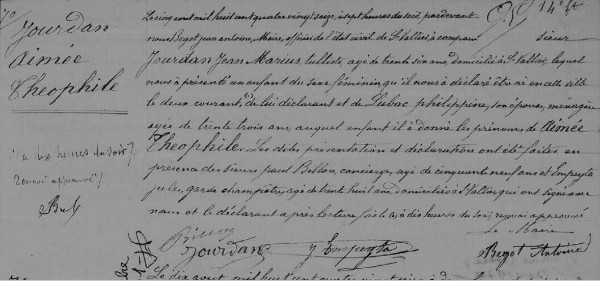 Jourdan
Aimée
Théophile
Le cinq août mil huit cent quatre vingt seize, à sept heures du soir, par devant
nous Begot Jean antoine, Maire, officier de l'état civil de St Vallier, a comparu sieur
Jourdan Jean Marius, tulliste, agé de trente six ans, domicilié à St Vallier, lequel
nous à présenté un enfant du sexe féminin, qu'il nous à déclaré être né en cette ville
le deux courant, de lui déclarant et de Lubac philippine, son épouse, ménagère
agée de trente trois ans, auquel enfant il à donné les prénoms de Aimée
Théophile. Les dites présentation et déclaration ont été faites en
présence des sieurs paul Billon, concierge, agé de cinquante neuf ans et Empeyta
jules, garde champêtre, agé de trente huit ans, domiciliés à St Vallier, qui ont signé avec
nous et le déclarant après lecture à dix heures du soir, renvoi approuvé
Le Maire
à dix heures du soir
Renvoi approuvé
Billon
Jourdan
J Empeyta
Begot Antoine
Le dix août mil huit cent quatre vingt seize à